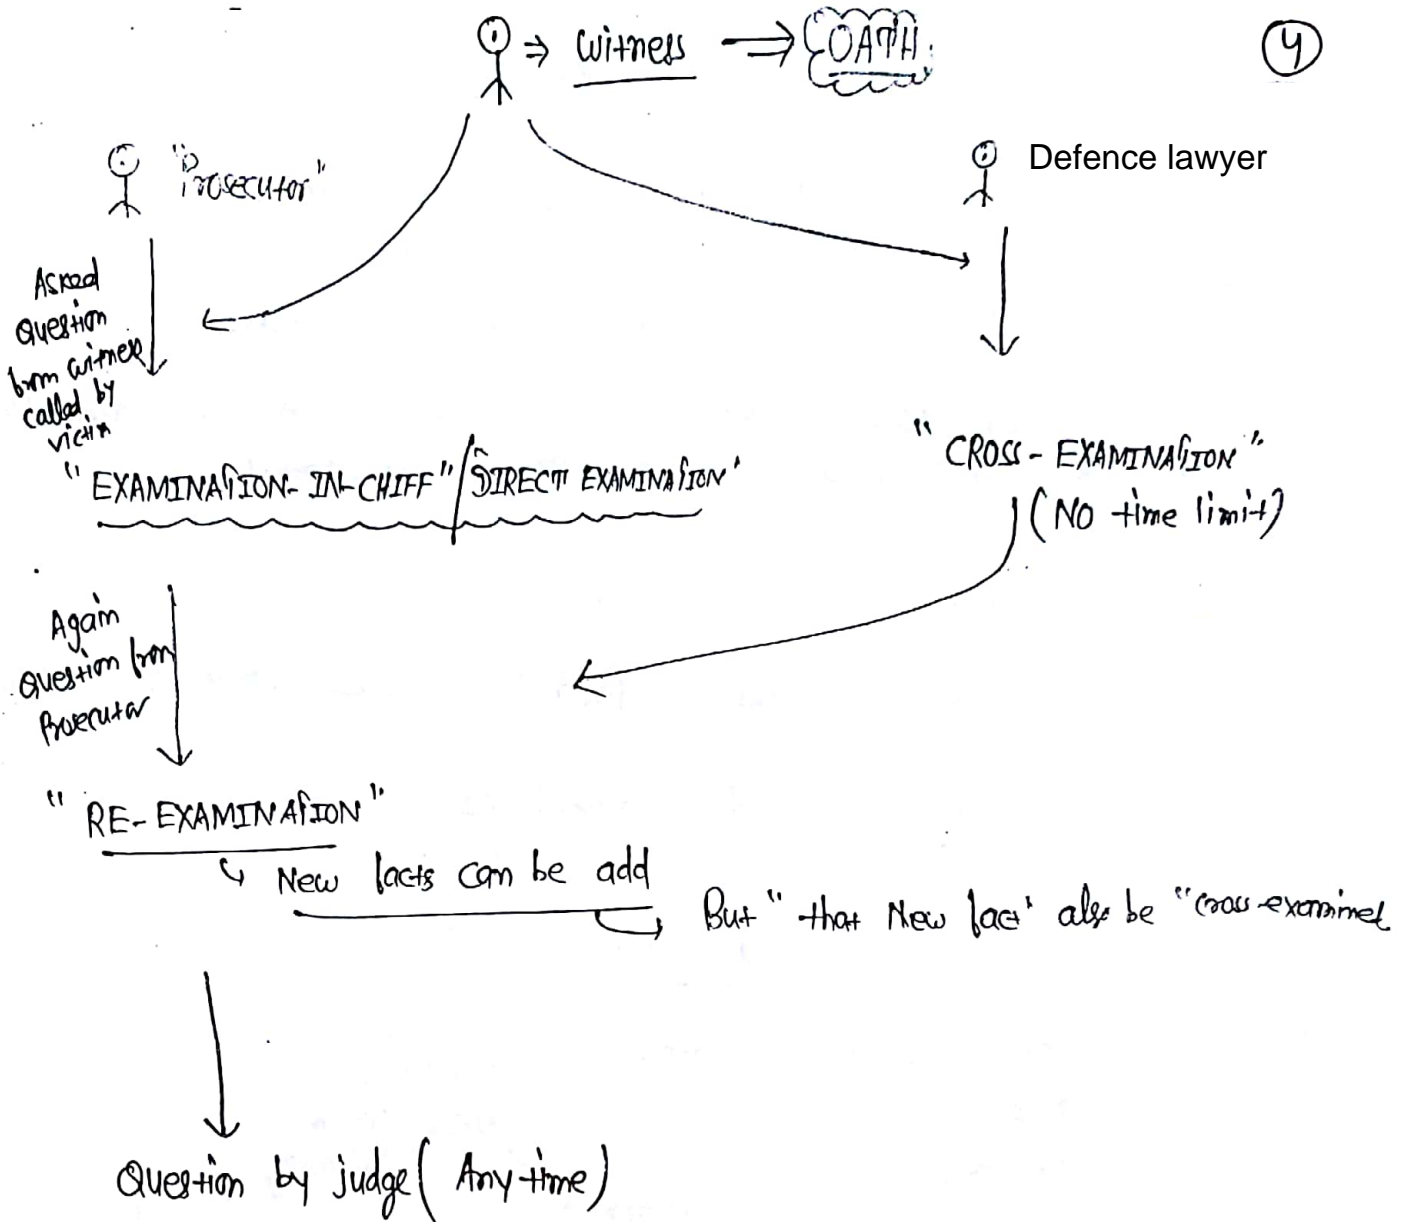 ⇒ Witness ⇒ OATH.
4
"Prosecutor"
Defence lawyer
Asked
Question
from witness
called by
victim
"EXAMINATION-IN-CHIFF"/DIRECT EXAMINATION'
"CROSS-EXAMINATION"
(NO time limit)
Again
Question from
Prosecutor
"RE-EXAMINATION"
New facts can be add
But "that New fact' also be "cross-examined
Question by judge (Any time)